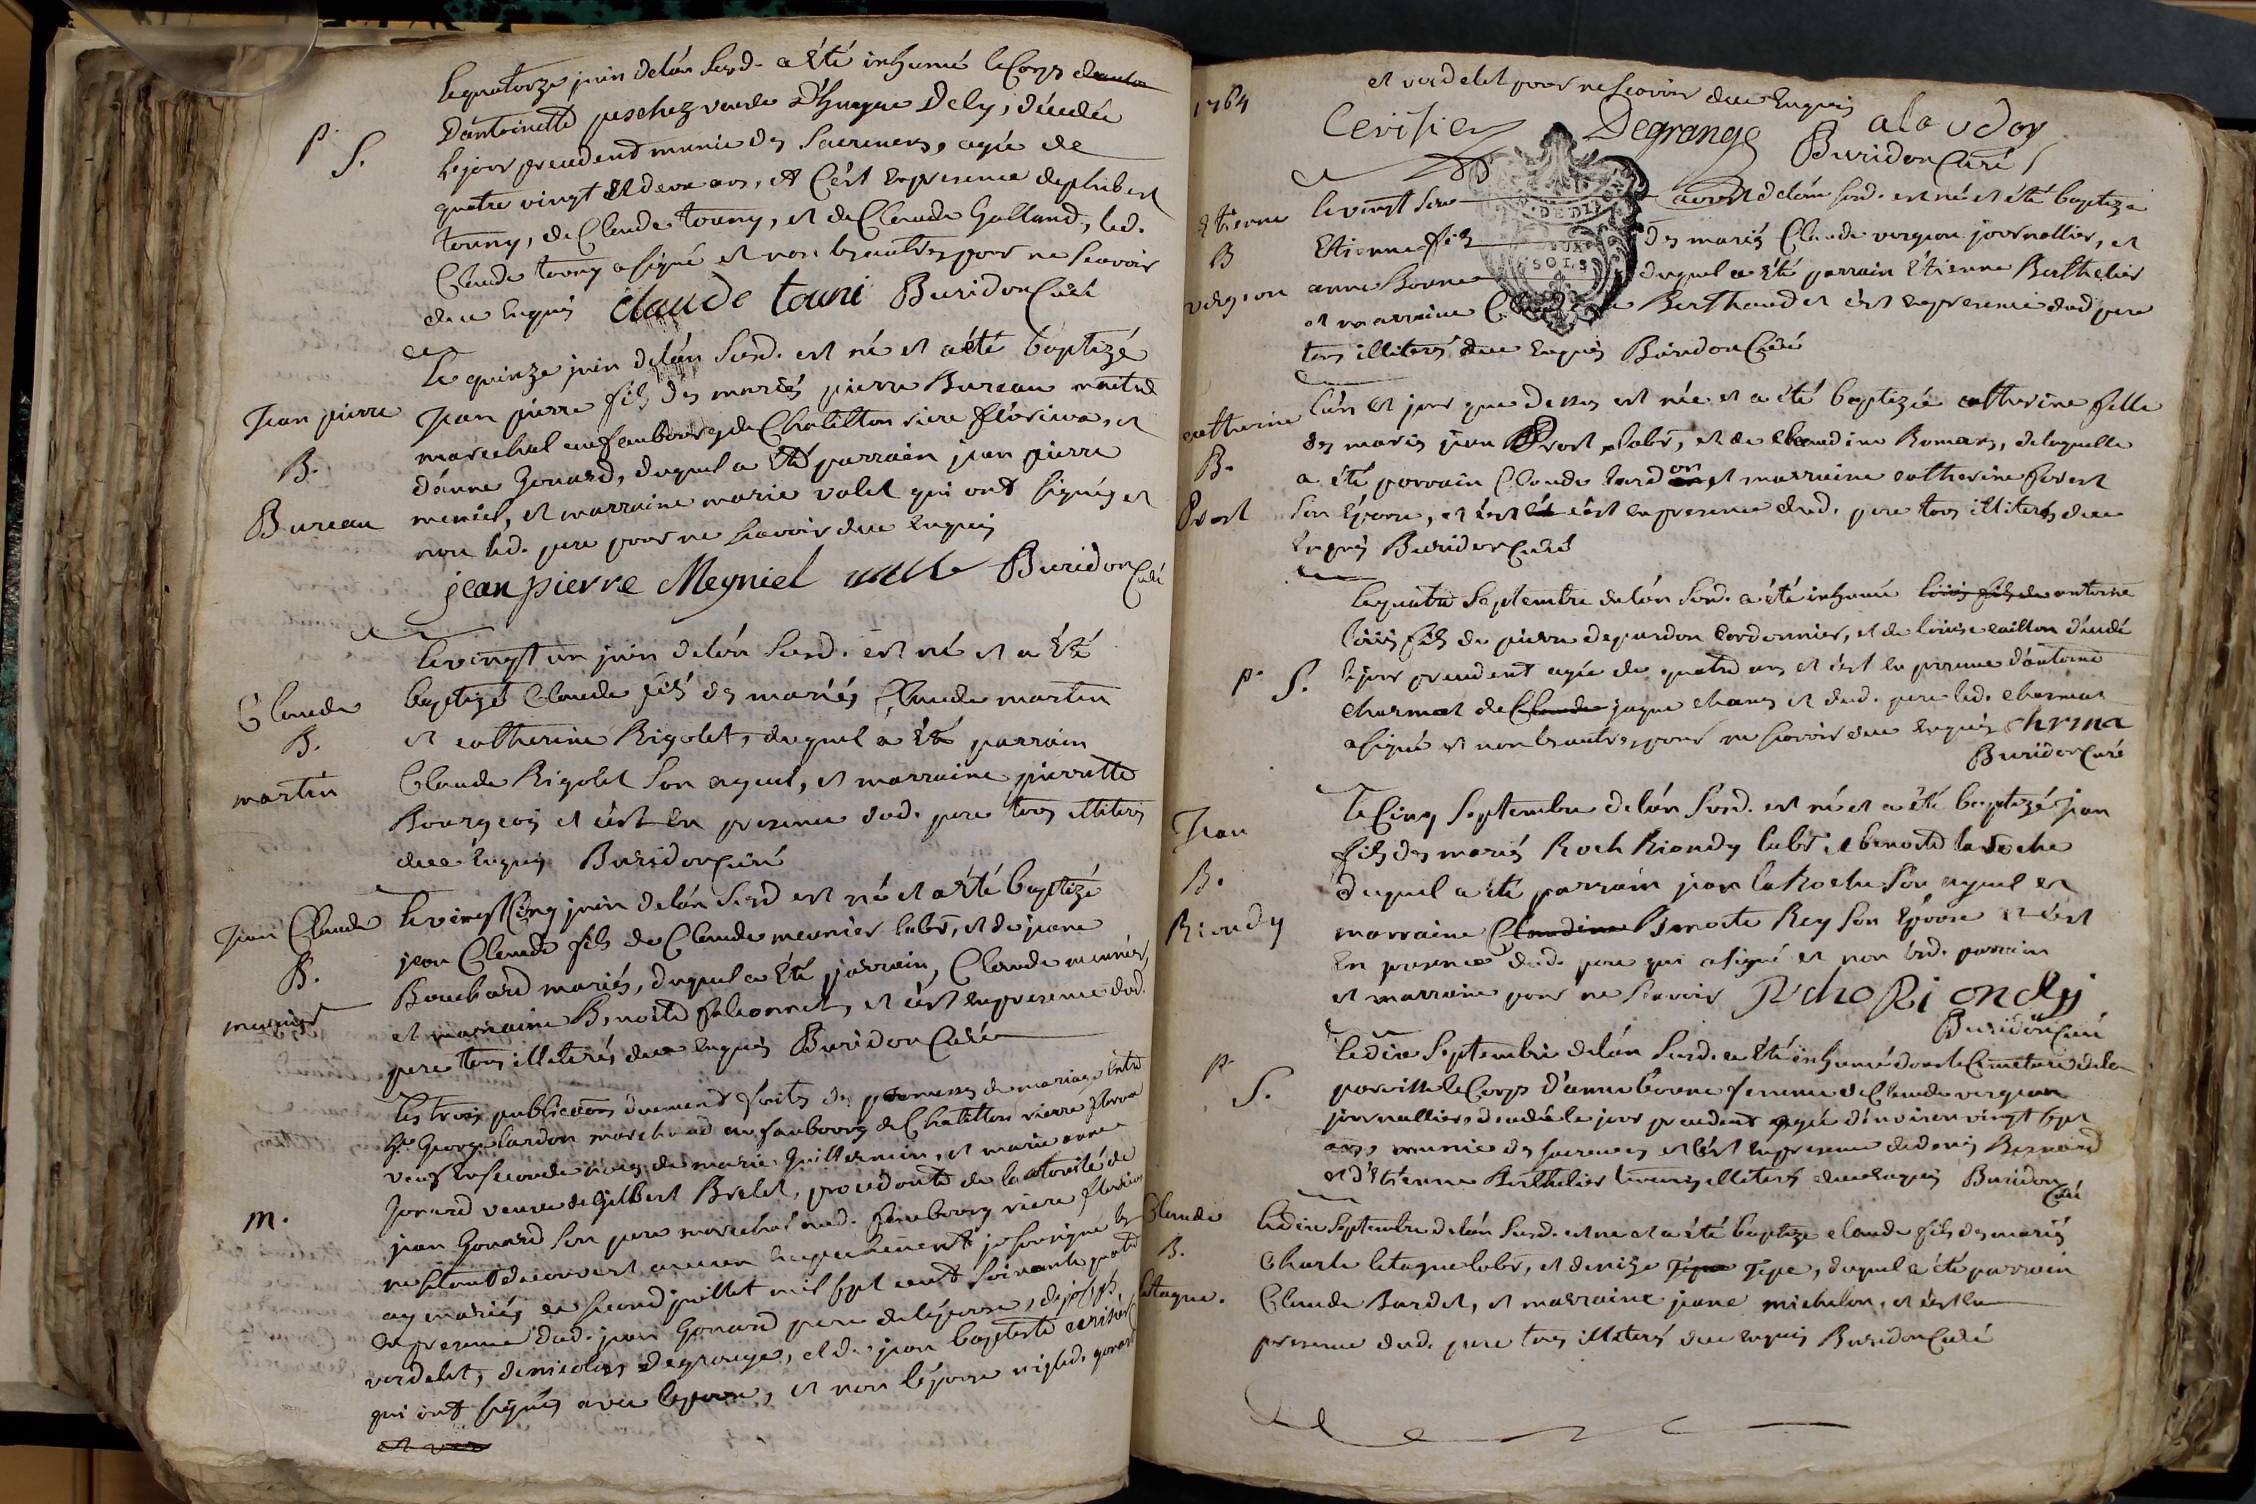 le quatorze juin delán susd. a été inhumé le Corps
Dantoinette peschez veuve d'hugue Dely, décédée
P. S.
le jour precedent munie des Sacremens, agée de
quatre vingt et deux ans, et C'ést en presence de philibert
touny, de Claude touny, et de Claude Galland, led.
Claude touny a signé et non les autres pour ne scavoir
de ce enquis claude touni Buridon Curé
le quinze juin delán susd. est né et a été baptizé
Jean pierre
Jean pierre fils des mariés pierre Bureau maitre
marechal au faubourg de Chatillon riere fleurieux, et
B.
d'anne Gonard, duquel a été parrain jean pierre
Bureau
meniel, et marraine marie valet qui ont signés et
non led. pere pour ne scavoir de ce enquis
jean pierre Meyniel Buridon Curé
le vingt un juin delán susd. est né et a été
Claude
baptizé Claude fils des mariés Claude martin
B.
et catherine Rigolet, duquel a été parrain
martin
Claude Rigolet son ayeul, et marraine pierrette
Bourgeois et c'ést en presence dud. pere tous illiterés
de ce enquis Buridon Curé
Jean Claude
le vingt Cinq juin delán susd est né et a été baptizé
B.
jean Claude fils de Claude meunier labr, et de jeane
meunier
Bouchard mariés, duquel a été parrain, Claude meunier,
et marraine Benoite falconnet, et c'ést en presence dud.
pere tous illiterés de ce enquis Buridon Curé
les trois publications duement faites des promesses de mariage entre
Sr. George lardon marchand au faubourg de Chatillon rierre
veuf en seconde noces de marie Guillermin, et marie anne
Gonard veuve de Gilbert Brelet, procedante de lautorité de
m.
jean Gonard son pere marechal aud. faubourg riere fleurieux
ne s'étant decouvert aucun empechement je soussigné les
ay mariés ce second juillet mil sept cent soixante quatre
en presence dud. jean Gonard pere de lépouse, de joseph
verdelet, de nicolas degrange, et de jean baptiste cerisier
qui ont signés avec lepoux, et non lépouse ni led. gonard
et ver
1764
et verdelet pour ne scavoir de ce enquis
Cerisier Degrange
Buridon Curé
DE DIJON
DEUX
SOLS
Etienne
le vingt aoust delán susd. est né et été baptizé
B
Etienne fils des mariés Claude vergion journallier, et
vergion
anne Bonne duquel a été parrain Étienne Berthelier
et marraine Berthaud et c'ést en presence dud pere
tous illiterés de ce enquis Buridon Curé
catherine
lán et jour que dessus est née et a été baptizée catherine fille
des mariés jean Prost labr, et de claudine Romans, de laquelle
B.
a été parrain Claude lardon et marraine catherine forest
Prost
son Épouse, et c'ést en presence dud. pere tous illiterés de ce
enquis Buridon Curé
le quatre Septembre delán susd. a été inhumé louis fils de antoine
louis fils de pierre depardon cordonnier, et de louise caillon décédé
P. S.
le jour precedent agée de quatre ans et c'ést en presence d'antoine
charmat de Claude jaque et dud. pere led. charmat
a signé et non les autres pour ne scavoir de ce enquis
Buridon Curé
le Cinq Septembre delán susd. est né et a été baptizé jean
Jean
fils des mariés Roch Riondy labr et benoite laroche
B.
duquel a été parrain jean laRoche son ayeul et
Riondy
marraine Claudine Benoite Rey son Épouse et c'ést
en presence dud. pere qui a signé et non lesd. parrain
et marraine pour ne scavoir
Buridon Curé
le dix Septembre delán susd. a été inhumé dans le Cimetiere de la
P. S.
paroisse le Corps d'anne bonne femme de Claude vergion
journallier, decedée le jour precedent agée d'environ vingt sept
ans, munie des sacremens et c'ést en presence de denis Bernard
et d'Étienne Berthelier illiterés de ce enquis Buridon
Curé
Claude
le dix septembre delán susd. est né et a été baptizé claude fils des mariés
B.
Charle letague labr, et denize Tepe, duquel a été parrain
letague.
Claude Bardet, et marraine jeane michelon, et c'ést en
presence dud. pere tous illiterés de ce enquis Buridon Curé